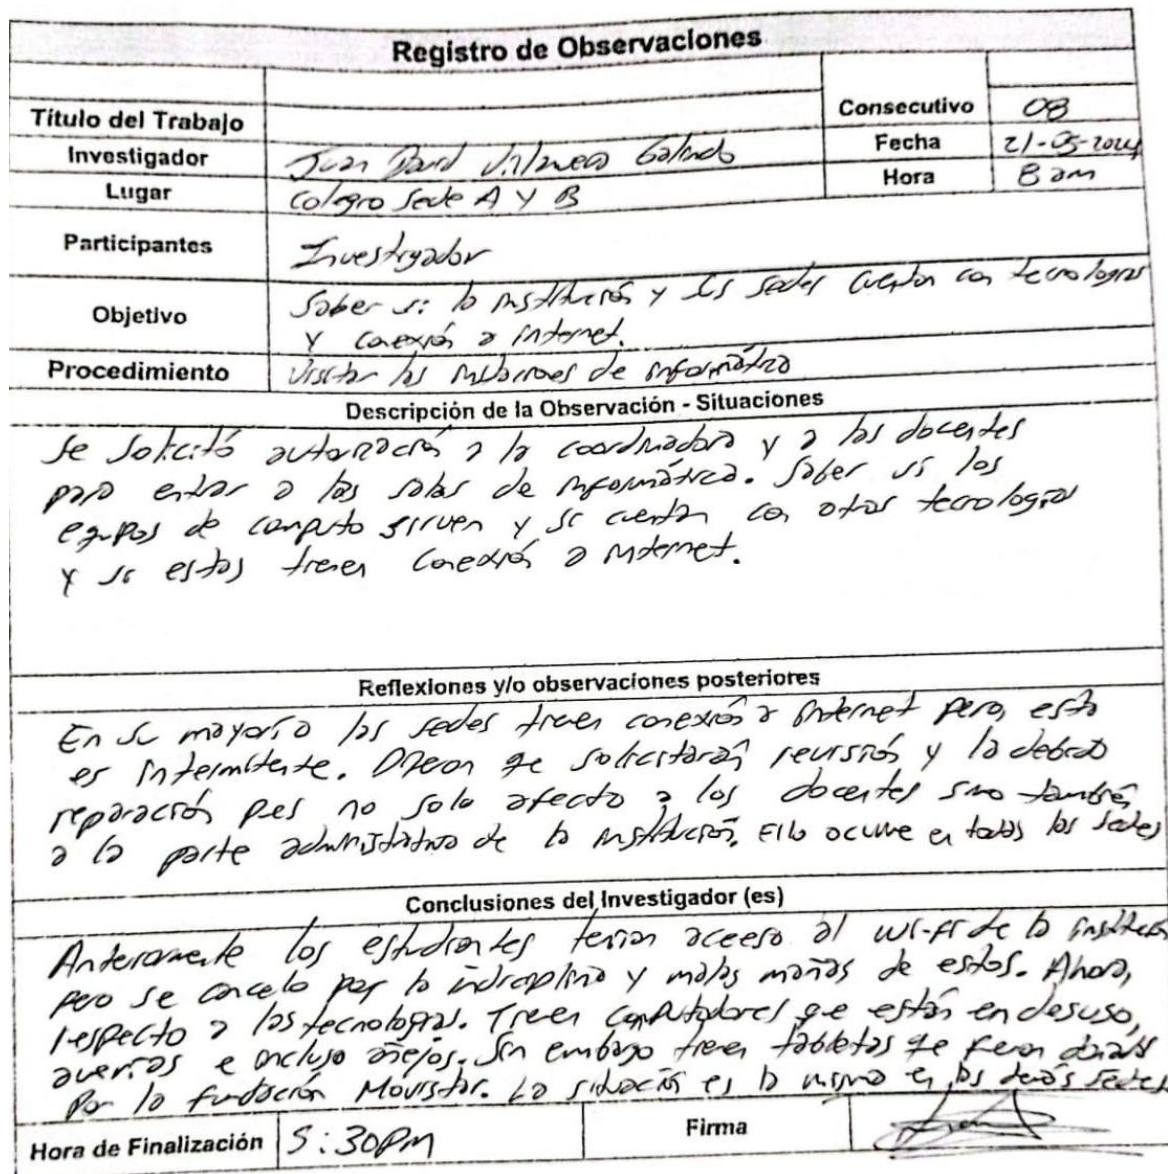 Registro de Observaciones
Título del Trabajo
Consecutivo 08
Investigador Juan David Villanueva Galindo
Fecha 21-05-2024
Lugar Colegio Sede A y B
Hora 8 am
Participantes Investigador
Objetivo Saber si la institución y las sedes cuentan con tecnologías
y conexión a internet.
Procedimiento Visitar las de informática
Descripción de la Observación - Situaciones
Se solicitó autorización a la coordinadora y a los docentes
para entrar a las salas de informática. Saber si los
equipos de computo sirven y si cuentan con otras tecnologías
y si estas tienen conexión a internet.
Reflexiones y/o observaciones posteriores
En su mayoría las sedes tienen conexión a internet pero, esta
es intermitente. Dicen que solicitarán revisión y la debida
reparación pues no solo afecta a los docentes sino también
a la parte administrativa de la institución. Ello ocurre en todas las sedes
Conclusiones del Investigador (es)
Anteriormente los estudiantes tenían acceso al wi-fi de la institución
pero se cancelo por la indisciplina y malas mañas de estos. Ahora,
respecto a las tecnologías. Tienen computadores que están en desuso,
averías e incluso añejos. Sin embargo tienen tabletas que fueron donadas
Por la fundación Movistar. La situación es la misma en las demás sedes
Hora de Finalización 5:30PM
Firma